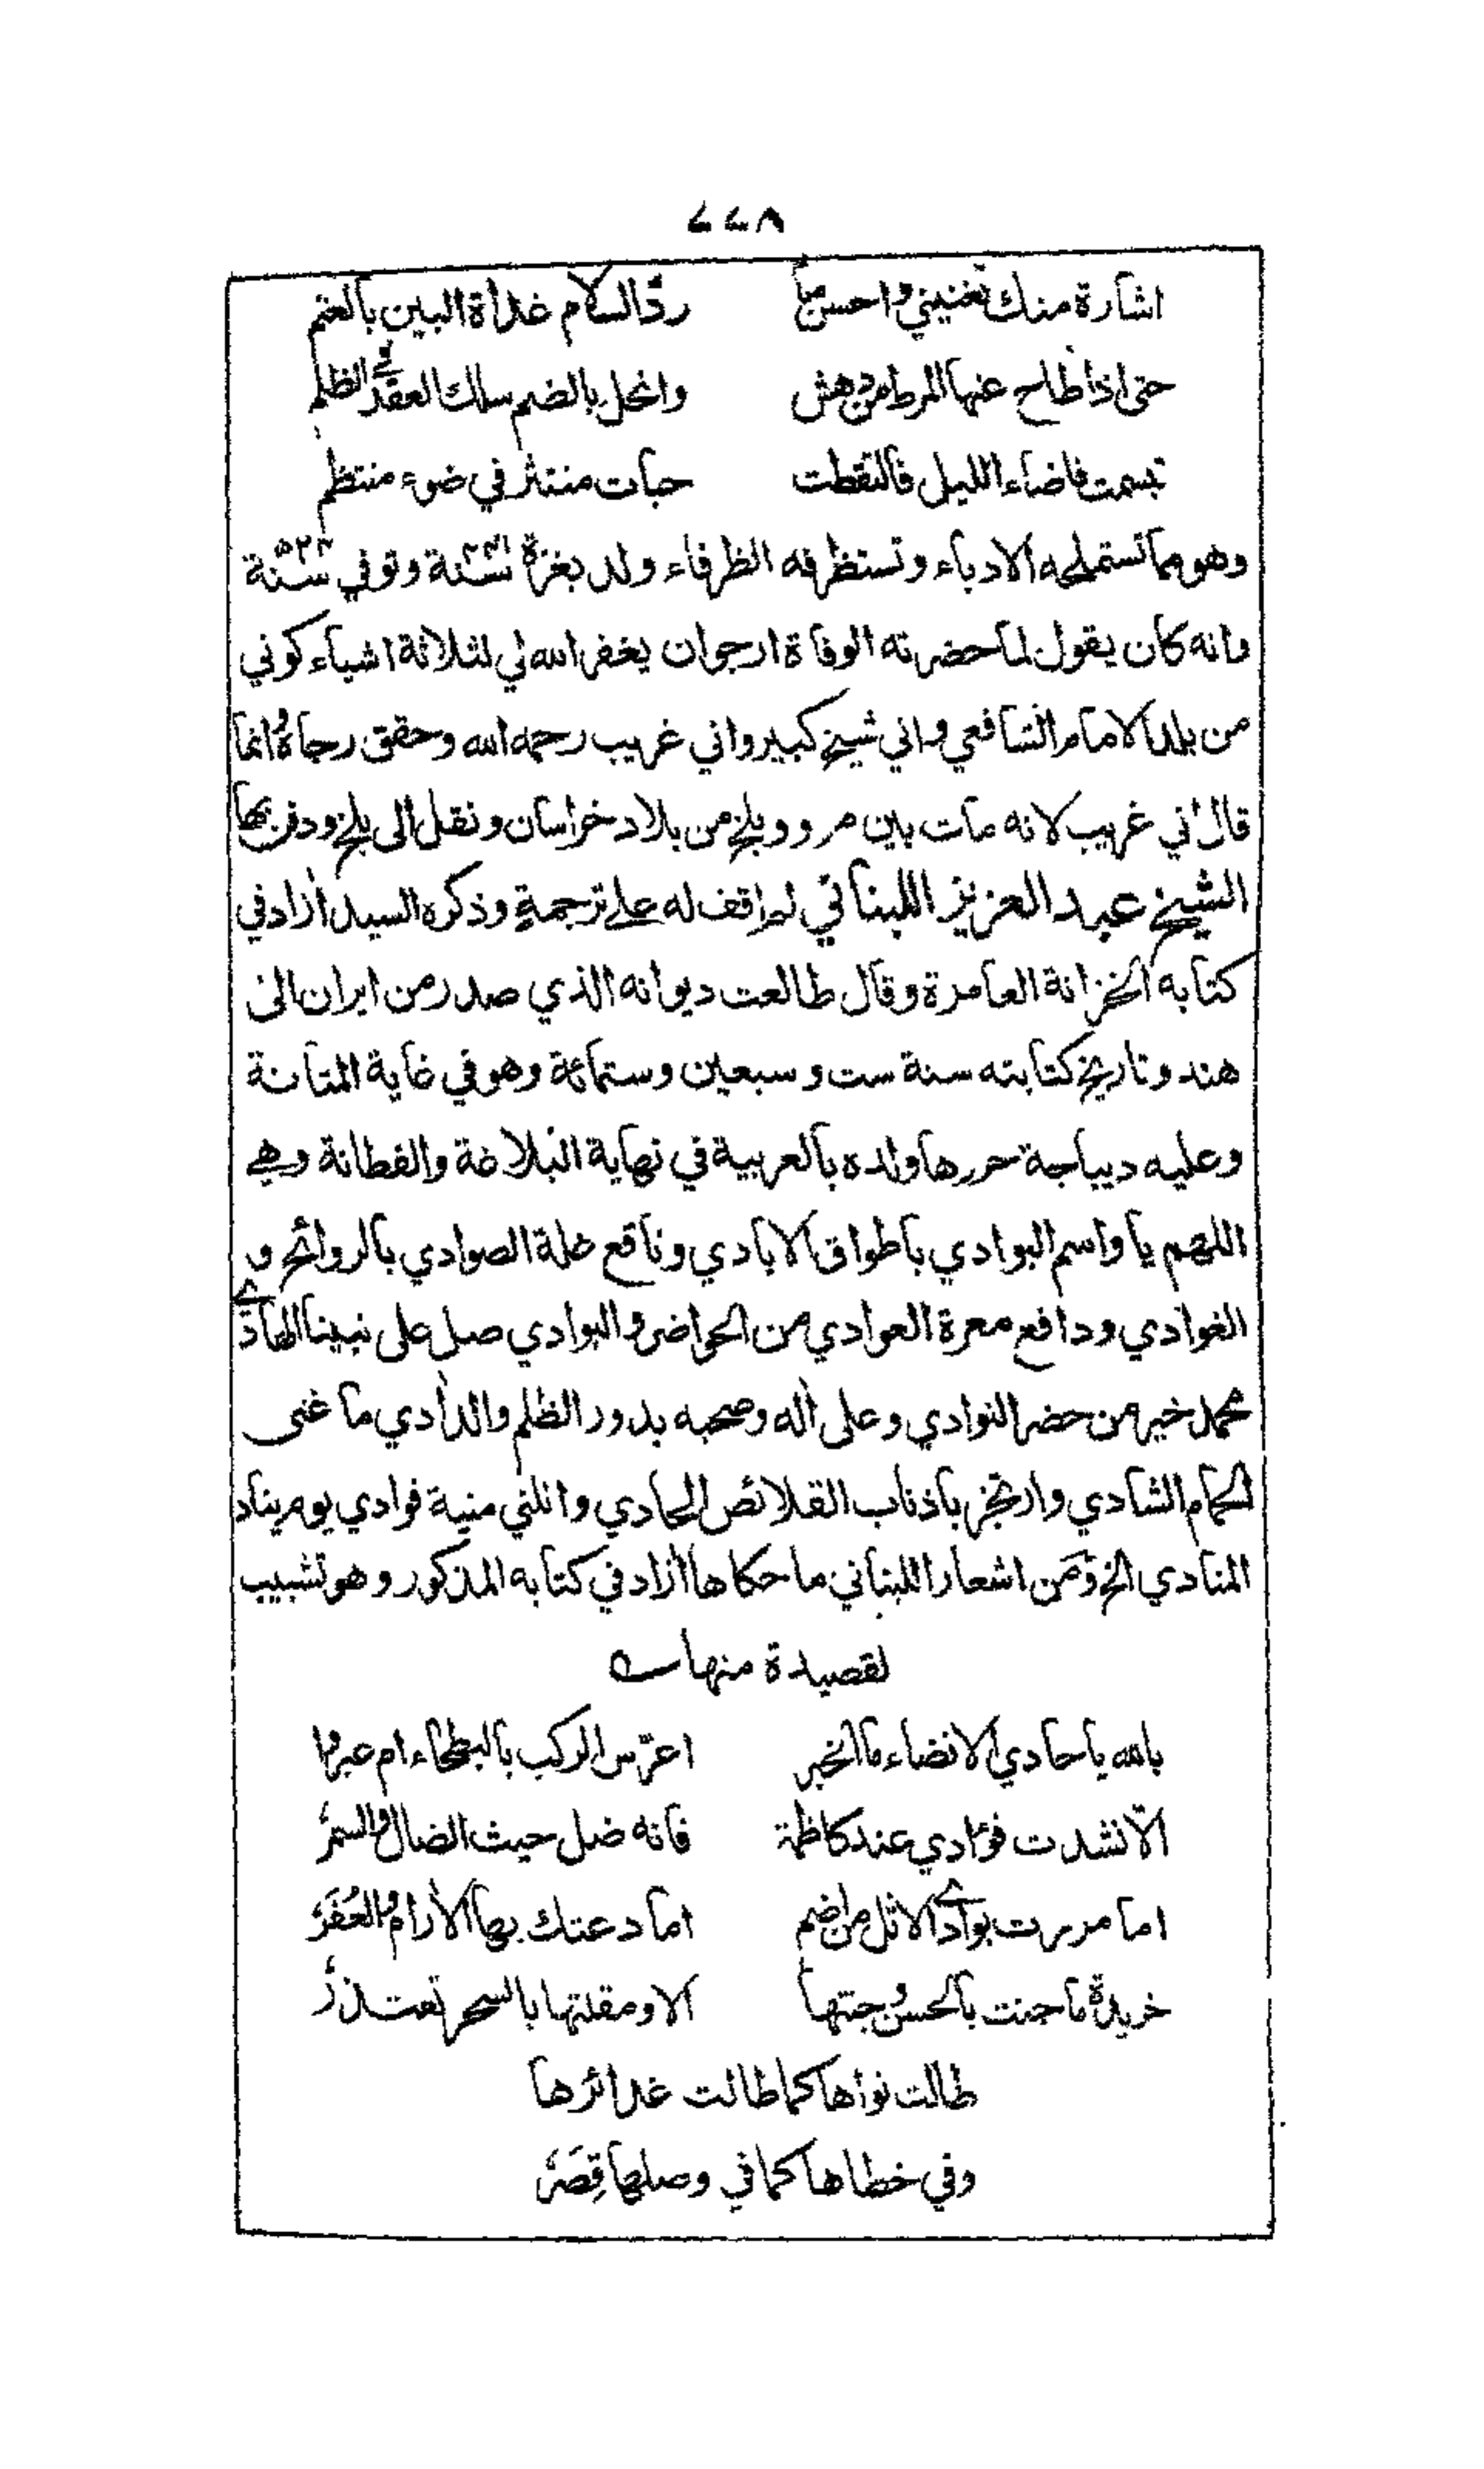 ٧٧٨
اشارة منك تغنيني واحسن ما ردّ السلام غداة البين بالعنم
حتى اذا طاح عنها المرط من دهش وانحل بالضم سلك العقد في الظلم
تبسمت فاضاء الليل فالتقطت حبات منتثر في ضوء منتظم
وهو مما تستملحه الادباء وتستظرفه الظرفاء ولد بغزة سنة وتوفي سنة
وانه كان يقول لما حضرته الوفاة ارجو ان يغفر الله لي لثلاثة اشياء كوني
من بلد الامام الشافعي واني شيخ كبير واني غريب رحمه الله وحقق رجاءه انما
قال اني غريب لانه مات بين مرو وبلخ من بلاد خراسان ونقل الى بلخ ودفن بها
الشيخ عبد العزيز اللبناني لم اقف له على ترجمة وذكره السيد أزاد في
كتابه الخزانة العامرة وقال طالعت ديوانه الذي صدر من ايران الى
هند وتاريخ كتابته سنة ست وسبعين وستمائة وهو في غاية المتانة
وعليه ديباجة حررها ولده بالعربية في نهاية البلاغة والفطانة وهي
اللهم يا واسم البوادي باطواق الايادي وناقع غلة الصوادي بالروائح و
الغوادي ودافع معرة العوادي من الحواضر والبوادي صل على نبينا الهادي
محمد خير من حضر النوادي وعلى أله وصحبه بدور الظلم والدأدي ما غنى
الحمام الشادي وارتجز باذناب القلائص الحادي وانلني منية فوادي يوم يناد
المنادي الخ ومن اشعار اللبناني ما حكاها أزاد في كتابه المذكور وهو تشبيب
لقصيدة منها
بالله يا حادي الانضاء ما الخبر اعرّس الركب بالبطحاء ام عبروا
الّا نشدت فؤادي عند كاظمة فانه ضل حيث الضال والسمرُ
اما مررت بوادي الاثل من اضم اما دعتك بها الأرام والعُفَرُ
خريدة ما جنت بالحسن وجنتها الا ومقلتها بالسحر تعتذرُ
طالت نواها كما طالت غدائرها
وفي خطاها كما في وصلها قِصَرُ